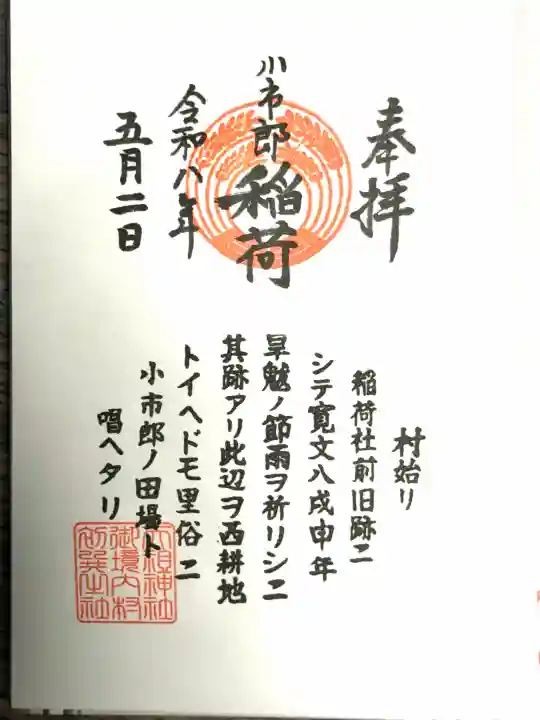 奉拝
小市郎稲荷
令和八年
五月二日
村始リ
稲荷社前旧跡ニ
シテ寛文八戌申年
旱魃ノ節雨ヲ祈リシニ
其跡アリ此辺ヲ西耕地
トイヘドモ里俗ニ
小市郎ノ田場ト
唱ヘタリ
神社
御境内村
社